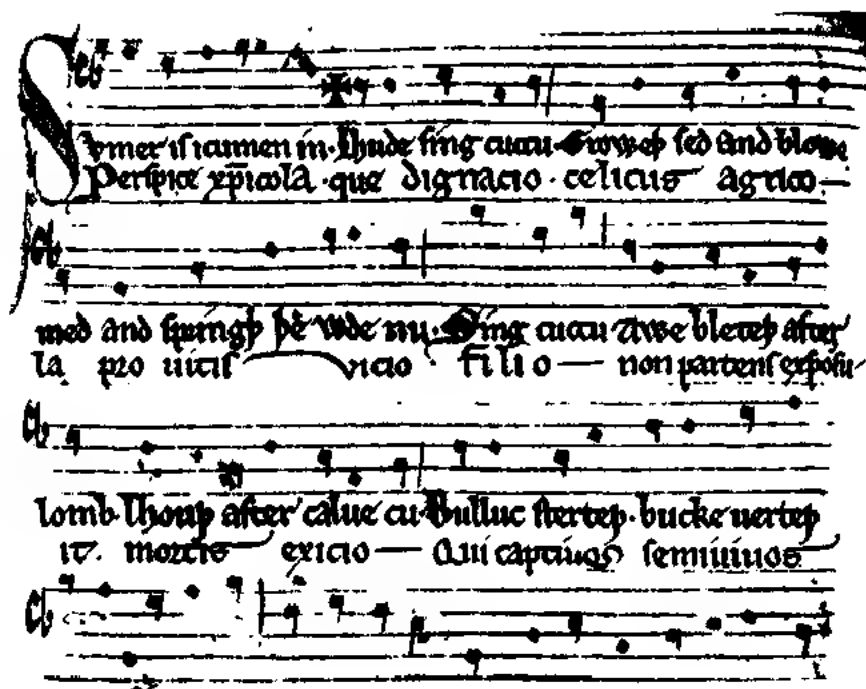 Svmer is icumen in· Lhude sing cuccu· Groweþ sed and blowe
Perspice xp̄icola· que dignacio· celicus agrico
med and springþ þe wde nu· Sing cuccu Awe bleteþ after
la pro uitis vicio· filio non parcens exposu
lomb· lhouþ after calue cu· Bulluc sterteþ· bucke uerteþ
it· mortis exicio Qui captiuos semiuiuos